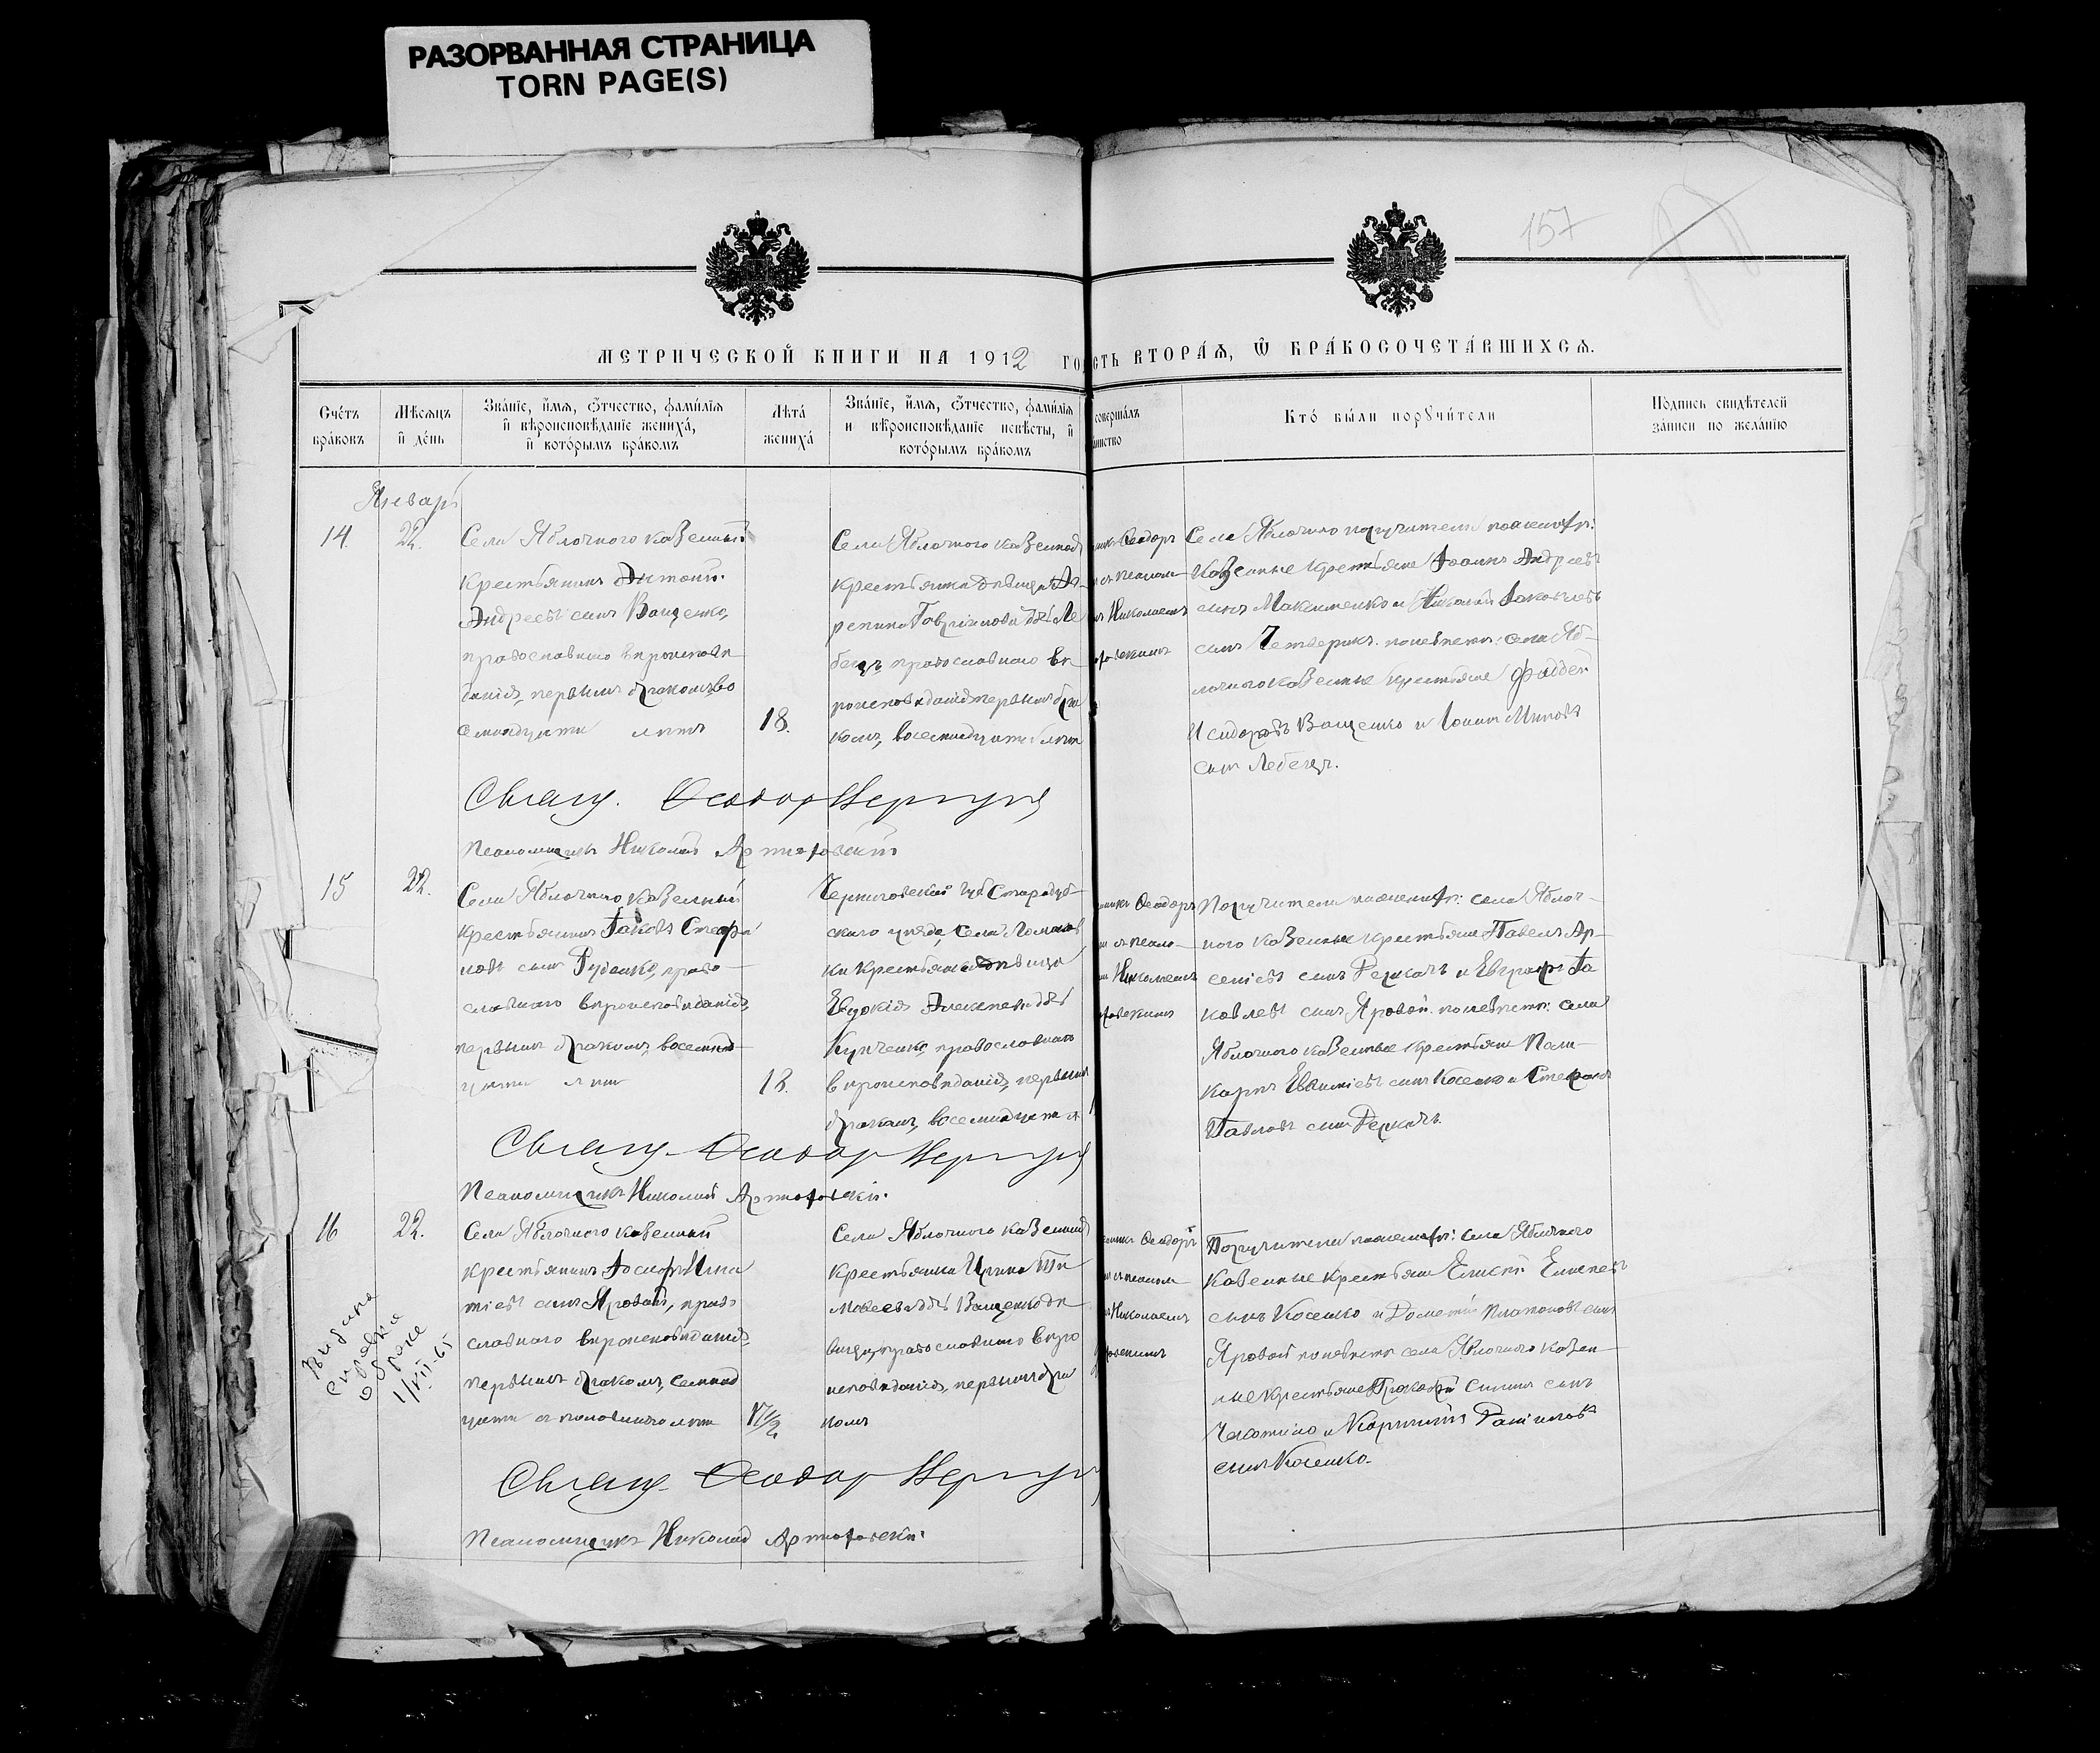 РАЗОРВАННАЯ СТРАНИЦА
TORN PAGE(S)
157
МЕТРИЧЕСКОЙ КНИГИ НА 1912 ГО
СТЬ ВТОРА́Ѧ, Ѿ БРА́КОСОЧЕТА́ВШИХСѦ.
Сче́тъ бра́ковъ
Мѣ́сѧцъ и де́нь
Зва́нїе, и́мѧ, ѻ́тчество, фамилїѧ
и вѣроисповѣ́данїе жениха́,
и кото́рымъ бра́комъ
Лѣта́ жениха́
Зва́нїе, и́мѧ, ѻ́тчество, фамилїѧ
и вѣроисповѣ́данїе невѣ́сты, и
кото́рымъ бра́комъ
соверша́лъ
Кто́ бы́ли порꙋчи́тели
По́дпись свидѣ́телей
за́писи по жела́нїю
Январь
14.
22.
Села Яблочного казенный
крестьянинъ Антоній
Андреевъ сынъ Ващенко,
православнаго вѣроисповѣ
данія, первымъ бракомъ, во
семнадцати лѣтъ
18.
Села Яблочного казенная
крестьянка дѣвица Ая-
Гавріилова
православнаго вѣ
роисповѣданія первымъ бра
комъ, восемнадцати лѣтъ
Феодоръ
Николаемъ
Села Яблочного поручители по женихѣ:
казенные крестьяне Іоаннъ Андреевъ
сынъ Максименко и Николай Іаковлевъ
сынъ Четверикъ. по невѣстѣ: села Яб-
лочного казенные крестьяне Фаддей
Исидоровъ Ващенко и Іоаннъ Миновъ
сынъ Лебедь.
Священ. Феодоръ
Псаломщикъ Николай
15
22.
Села Яблочного казенный
крестьянинъ Іаковъ Стефа
новъ сынъ Руденко, право-
славнаго вѣроисповѣданія,
первымъ бракомъ, восемнад-
цати лѣтъ
18.
Черниговской губ. Стародуб-
скаго уѣзда, села
ки крестьянка дѣвица
Евдокія Алексѣева
Купченко, православнаго
вѣроисповѣданія, первымъ
бракомъ, восемнадцати л
Феодоръ
Николаемъ
Поручители по женихѣ: села Яблоч-
ного казенные крестьяне Павелъ Ар-
сеніевъ сынъ и Евграфъ Іа
ковлевъ сынъ Яровой. по невѣстѣ: села
Яблочного казенные крестьяне Поли-
карпъ Евѳиміевъ сынъ Косенко и Стефанъ
Павловъ сынъ
Священ. Феодоръ
Псаломщикъ Николай
16
22.
Села Яблочного казенный
крестьянинъ Іосифъ Игна
тіевъ сынъ Яровой, право
славнаго вѣроисповѣданія,
первымъ бракомъ, семнад
цати съ половиною лѣтъ
17½
Села Яблочного казенная
крестьянка Ирина Ти
моѳеева Ващенко дѣ
вица, православнаго вѣро
исповѣданія, первымъ бра
комъ
Феодоръ
Николаемъ
Поручители по женихѣ: села Яблочного
казенные крестьяне Елисей Елисеевъ
сынъ Косенко и Дометій Платоновъ сынъ
Яровой по невѣстѣ села Яблочного казен-
ные крестьяне сынъ
и Корнилій
сынъ Косенко.
Выдана
справка
о браке
1/VII-65
Священ. Феодоръ
Псаломщикъ Николай